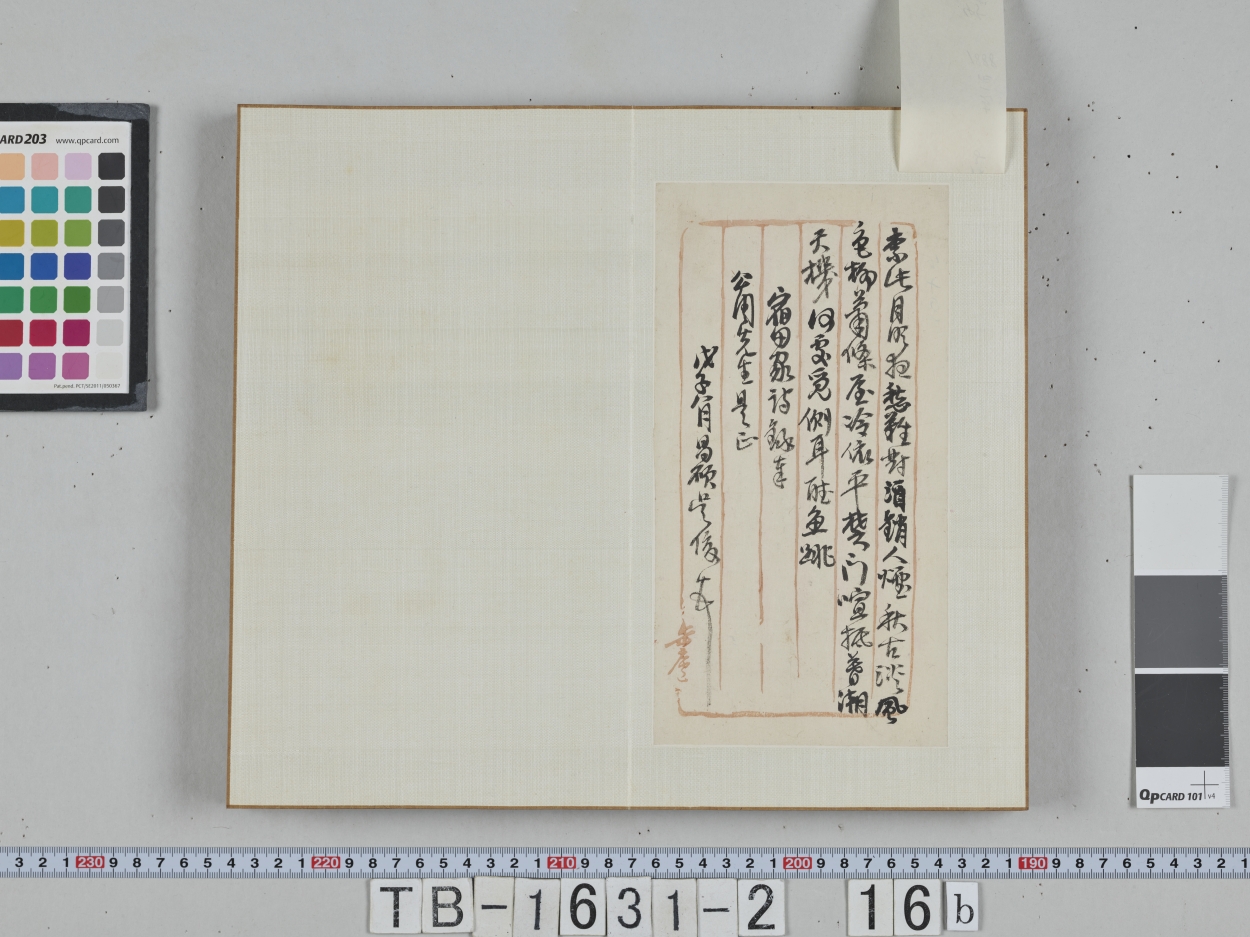 柰此月明夜愁難對酒銷人煙秋古淡風
色柳蕭條屋冷依平楚门喧抵暮潮
天機何處覓側耳聽魚跳
宿田家詩錄奉
公周先生是正
戊子八月昌碩吳俊
缶廬
ARD203 www.qpcard.com
Pat.pend. PCT/SE2011/050367
QpCARD 101 v4
3 2 1 230 9 8 7 6 5 4 3 2 1 220 9 8 7 6 5 4 3 2 1 210 9 8 7 6 5 4 3 2 1 200 9 8 7 6 5 4 3 2 1 190 9 8 7 6 5 4 3 2 1
TB-1631-2 16 b